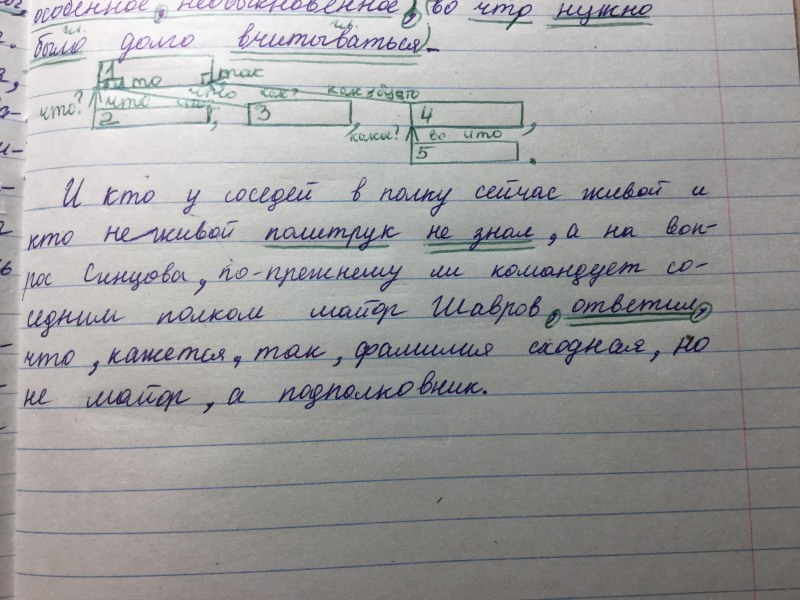 особенное, необыкновенное, (во что нужно
гл. гл.
было долго вчитываться)
1 так
что?
что что как? как будто
2, 3, 4,
какое? во что
5.
И кто у соседей в полку сейчас живой и
кто неживой политрук не знал, а на воп-
рос Синцова, по-прежнему ли командует со-
седним полком майор Шавров, ответил,
что, кажется, так, фамилия сходная, но
не майор, а подполковник.